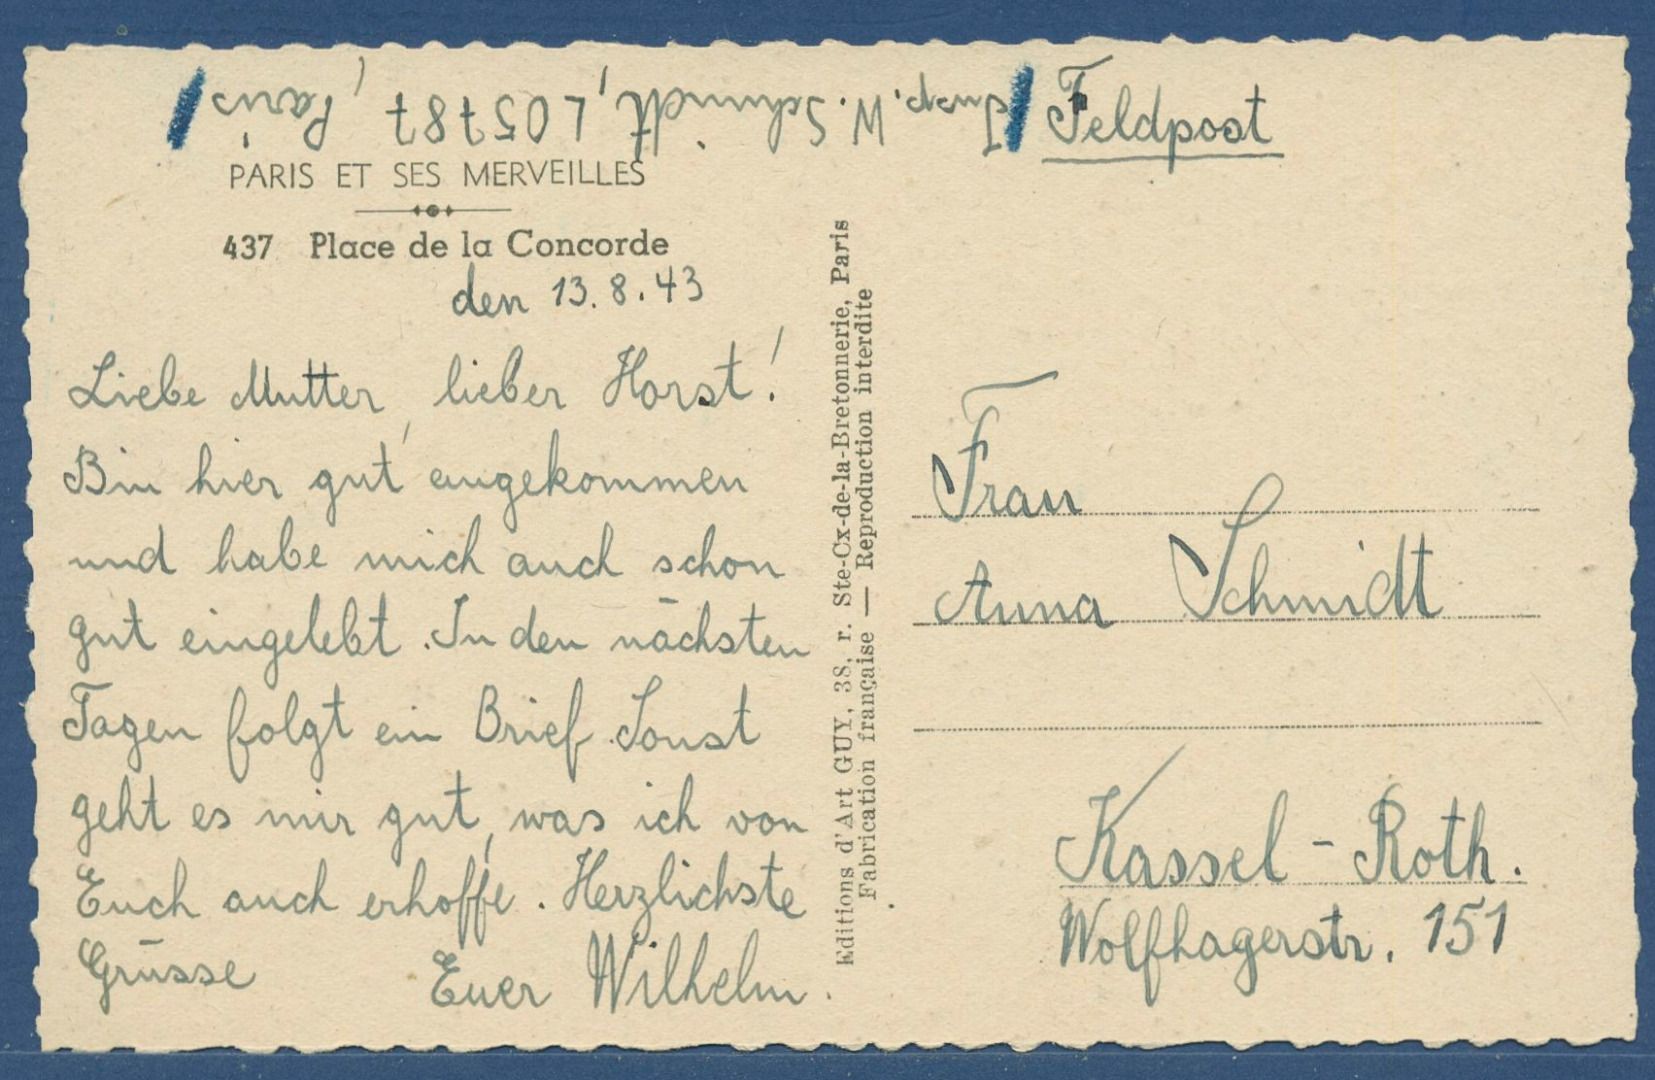 Insp. W. Schmidt, L 05787, Paris
Feldpost
PARIS ET SES MERVEILLES
437 Place de la Concorde
den 13.8.43
Liebe Mutter, lieber Horst!
Bin hier gut angekommen
und habe mich auch schon
gut eingelebt. In den nächsten
Tagen folgt ein Brief. Sonst
geht es mir gut, was ich von
Euch auch erhoffe. Herzlichste
Grüsse Euer Wilhelm.
Editions d'Art GUY, 38, r. Ste-Cx-de-la-Bretonnerie, Paris
Fabrication française — Reproduction interdite
Frau
Anna Schmidt
Kassel - Roth.
Wolfhagerstr. 151